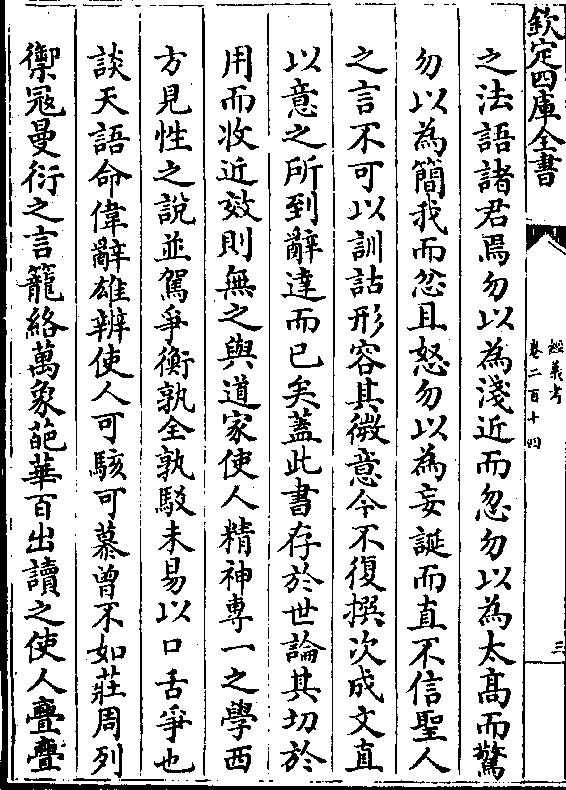 欽定四庫全書
經義考
卷二百十四
三
之法語諸君焉勿以為淺近而忽勿以為太高而驚
勿以為簡我而忿且怒勿以為妄誕而直不信聖人
之言不可以訓詁形容其微意今不復撰次成文直
以意之所到辭達而已矣蓋此書存於世論其切於
用而收近效則無之與道家使人精神專一之學西
方見性之說並駕爭衡孰全孰駁未易以口舌爭也
談天語命偉辭雄辨使人可駭可慕曾不如莊周列
禦冦曼衍之言籠絡萬象葩華百出讀之使人亹亹